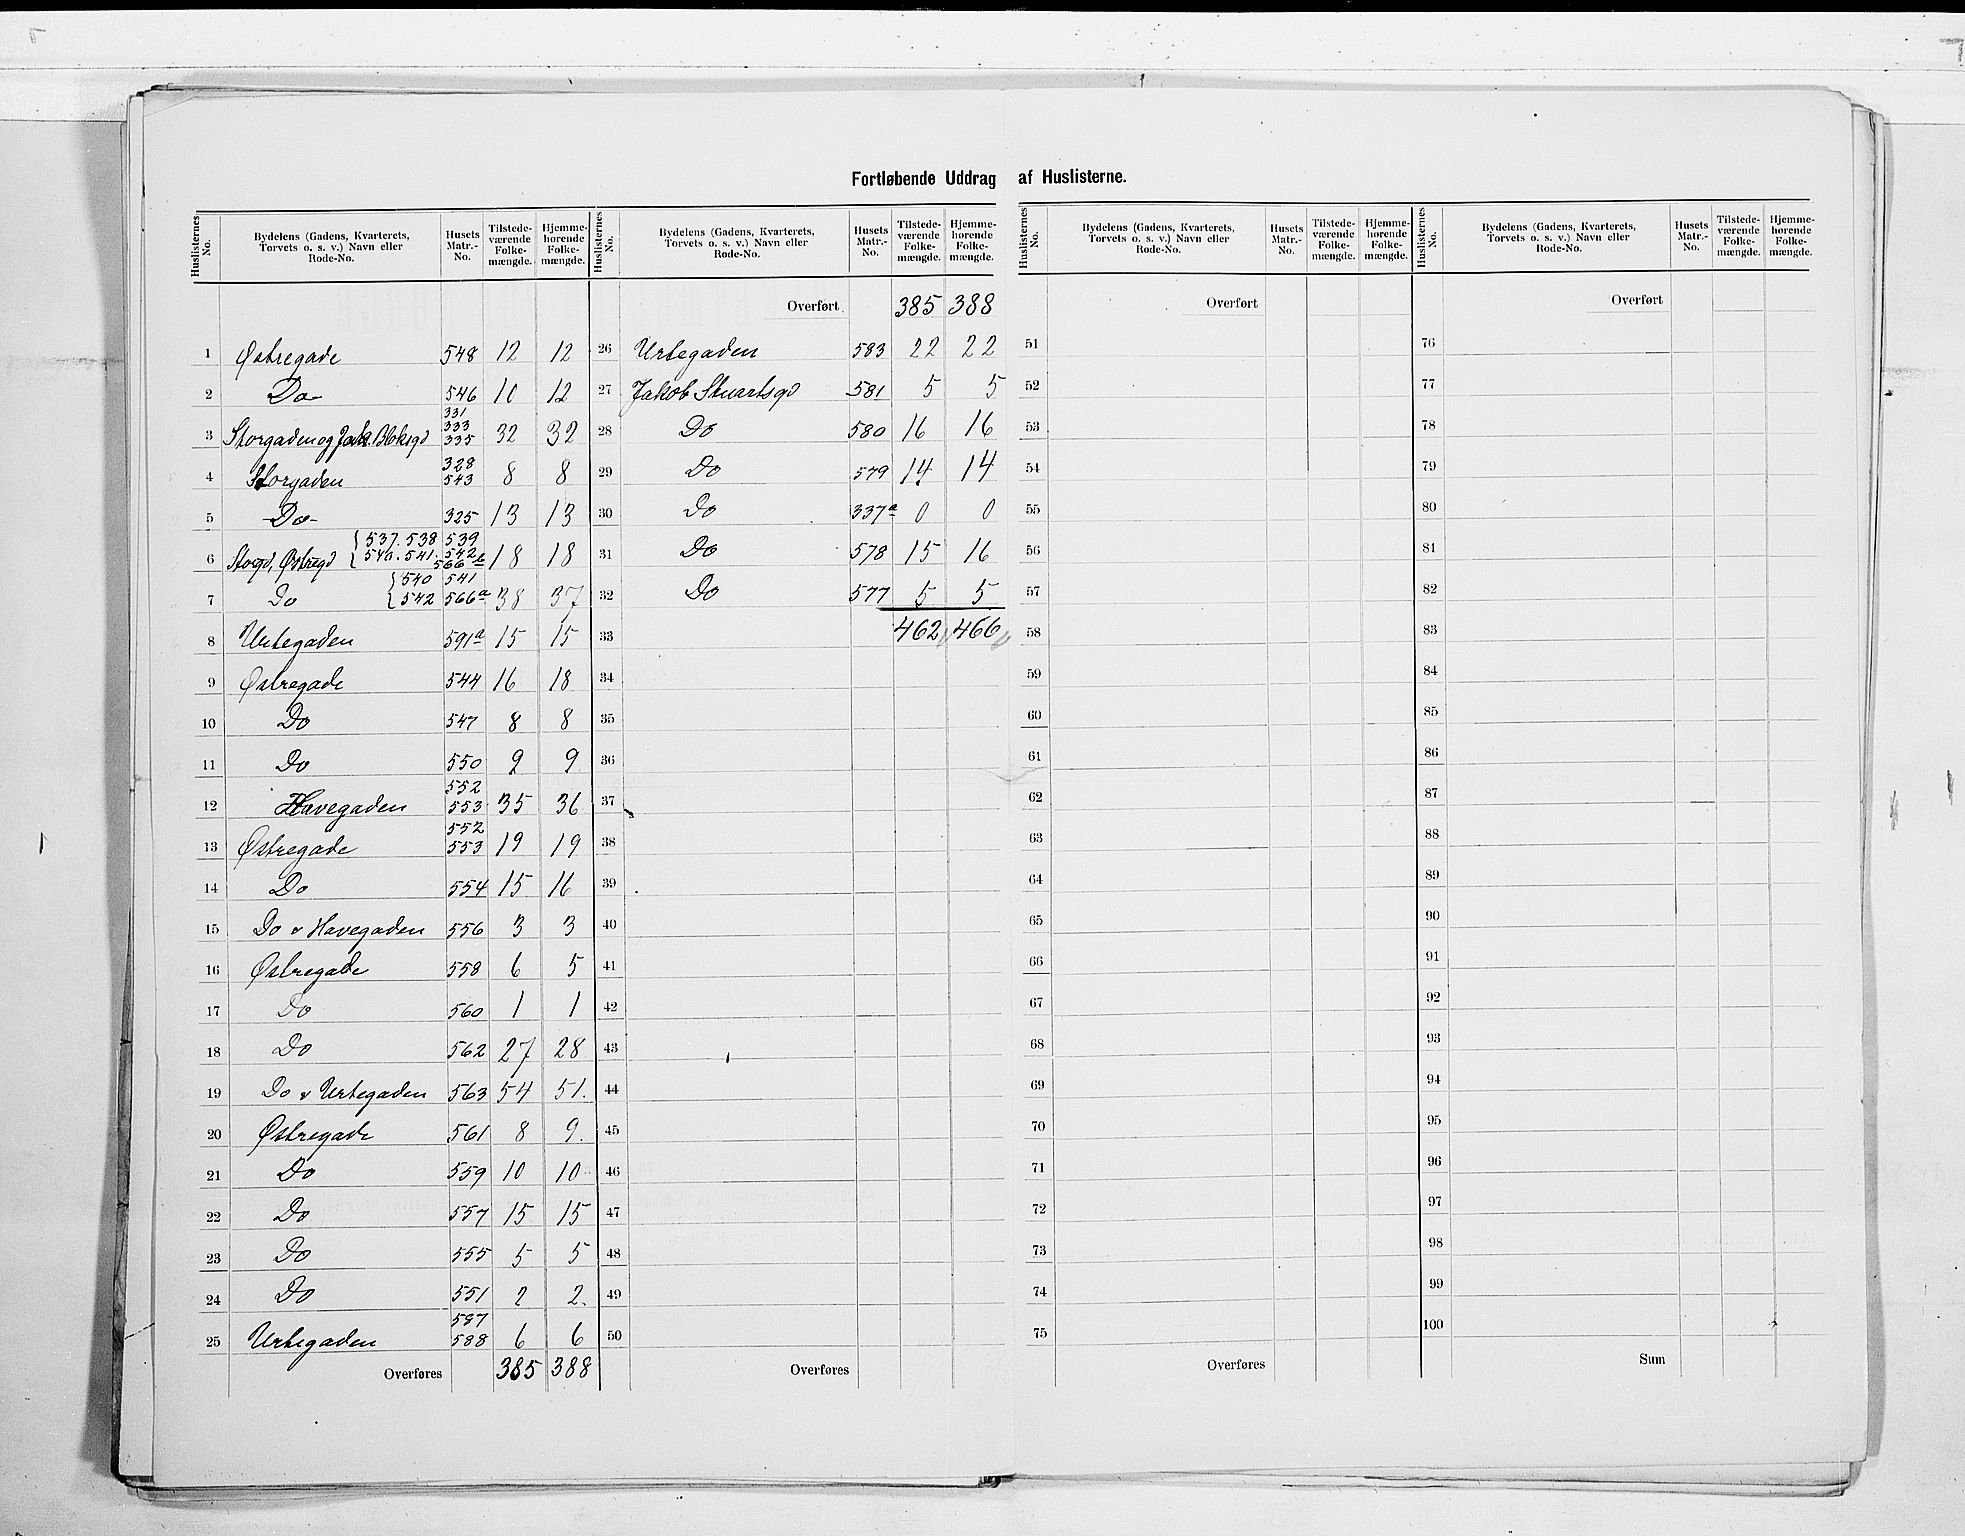 Fortløbende Uddrag af Huslisterne.
Huslisternes No. | Bydelens (Gadens, Kvarterets, Torvets o. s. v.) Navn eller Rode-No. | Husets Matr.-No. | Tilstedeværende Folkemængde. | Hjemmehørende Folkemængde.
1 Østregade 548 12 12
2 Do 546 10 12
3 Storgaden og Jak. Bloksgd 331 333 335 32 32
4 Storgaden 328 543 8 8
5 Do 325 13 13
6 Storgd, Østregd 537. 538 539 540. 541. 542 566 18 18
7 Do 540 541 542 566a 38 37
8 Urtegaden 591a 15 15
9 Østregade 544 16 18
10 Do 547 8 8
11 Do 550 9 9
12 Havegaden 552 553 35 36
13 Østregade 552 553 19 19
14 Do 554 15 16
15 Do v Havegaden 556 3 3
16 Østregade 558 6 5
17 Do 560 1 1
18 Do 562 27 28
19 Do v Urtegaden 563 54 51
20 Østregade 561 8 9
21 Do 559 10 10
22 Do 557 15 15
23 Do 555 5 5
24 Do 551 2 2
25 Urtegaden 587 588 6 6
Overføres 385 388
Huslisternes No. | Bydelens (Gadens, Kvarterets, Torvets o. s. v.) Navn eller Rode-No. | Husets Matr.-No. | Tilstedeværende Folkemængde. | Hjemmehørende Folkemængde.
Overført 385 388
26 Urtegaden 583 22 22
27 Jakob Stuartsgd 581 5 5
28 Do 580 16 16
29 Do 579 14 14
30 Do 337a 0 0
31 Do 578 15 16
32 Do 577 5 5
33 462 466
34
35
36
37
38
39
40
41
42
43
44
45
46
47
48
49
50
Overføres
Huslisternes No. | Bydelens (Gadens, Kvarterets, Torvets o. s. v.) Navn eller Rode-No. | Husets Matr.-No. | Tilstedeværende Folkemængde. | Hjemmehørende Folkemængde.
Overført
51
52
53
54
55
56
57
58
59
60
61
62
63
64
65
66
67
68
69
70
71
72
73
74
75
Overføres
Huslisternes No. | Bydelens (Gadens, Kvarterets, Torvets o. s. v.) Navn eller Rode-No. | Husets Matr.-No. | Tilstedeværende Folkemængde. | Hjemmehørende Folkemængde.
Overført
76
77
78
79
80
81
82
83
84
85
86
87
88
89
90
91
92
93
94
95
96
97
98
99
100
Sum